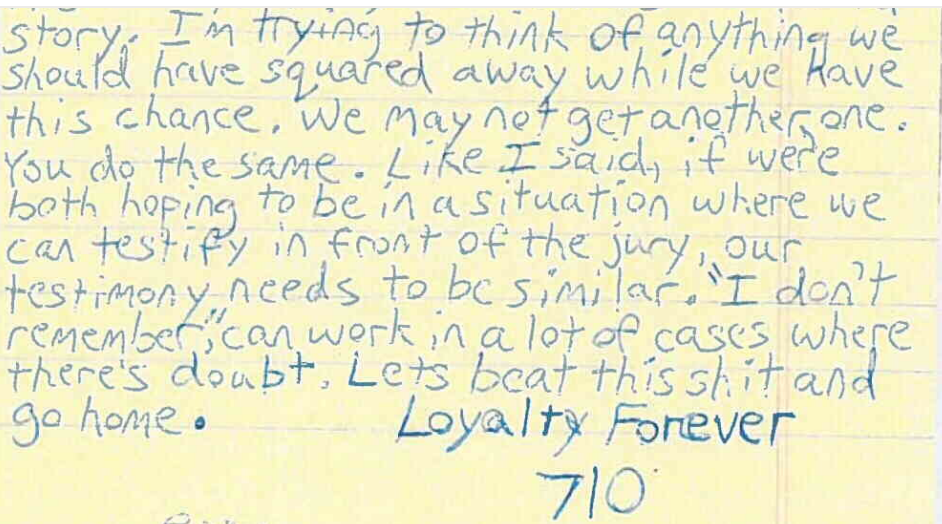 story. I'm trying to think of anything we
should have squared away while we have
this chance. We may not get another one.
You do the same. Like I said, if we're
both hoping to be in a situation where we
can testify in front of the jury, our
testimony needs to be similar. "I don't
remember," can work in a lot of cases where
there's doubt. Lets beat this shit and
go home.
Loyalty Forever
710